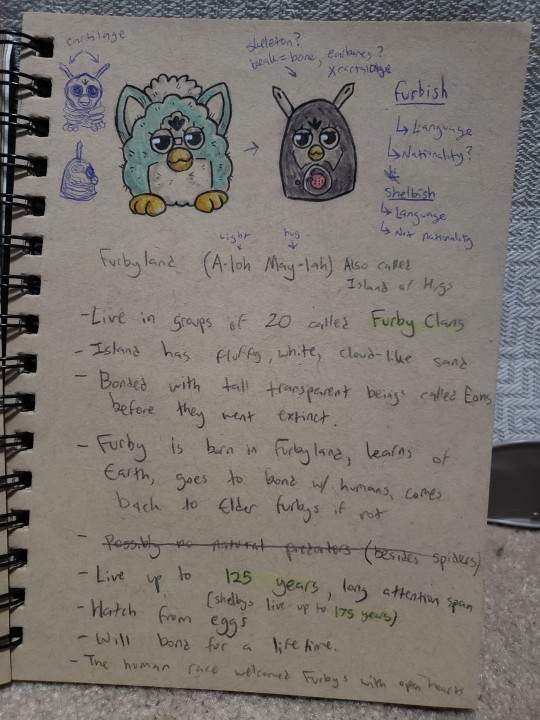 cartilage
skeleton?
beak = bone, earbones?
x cartilage
Furbish
↳ Language
↳ Nationality?
shelbish
↳ Language
↳ Not nationality
light hug
Furbyland (A-loh May-lah) Also called
Island of Hugs
- Live in groups of 20 called Furby Clans
- Island has fluffy, white, cloud-like sand
- Bonded with tall transparent beings called Eons
before they went extinct.
- Furby is born in Furbyland, learns of
Earth, goes to bond w/ humans, comes
back to Elder furbys if not
- Possibly no natural predators (besides spiders)
- Live up to 125 years, long attention span
(shelbys live up to 175 years)
- Hatch from eggs
- Will bond for a lifetime.
- The human race welcomed Furbys with open hearts